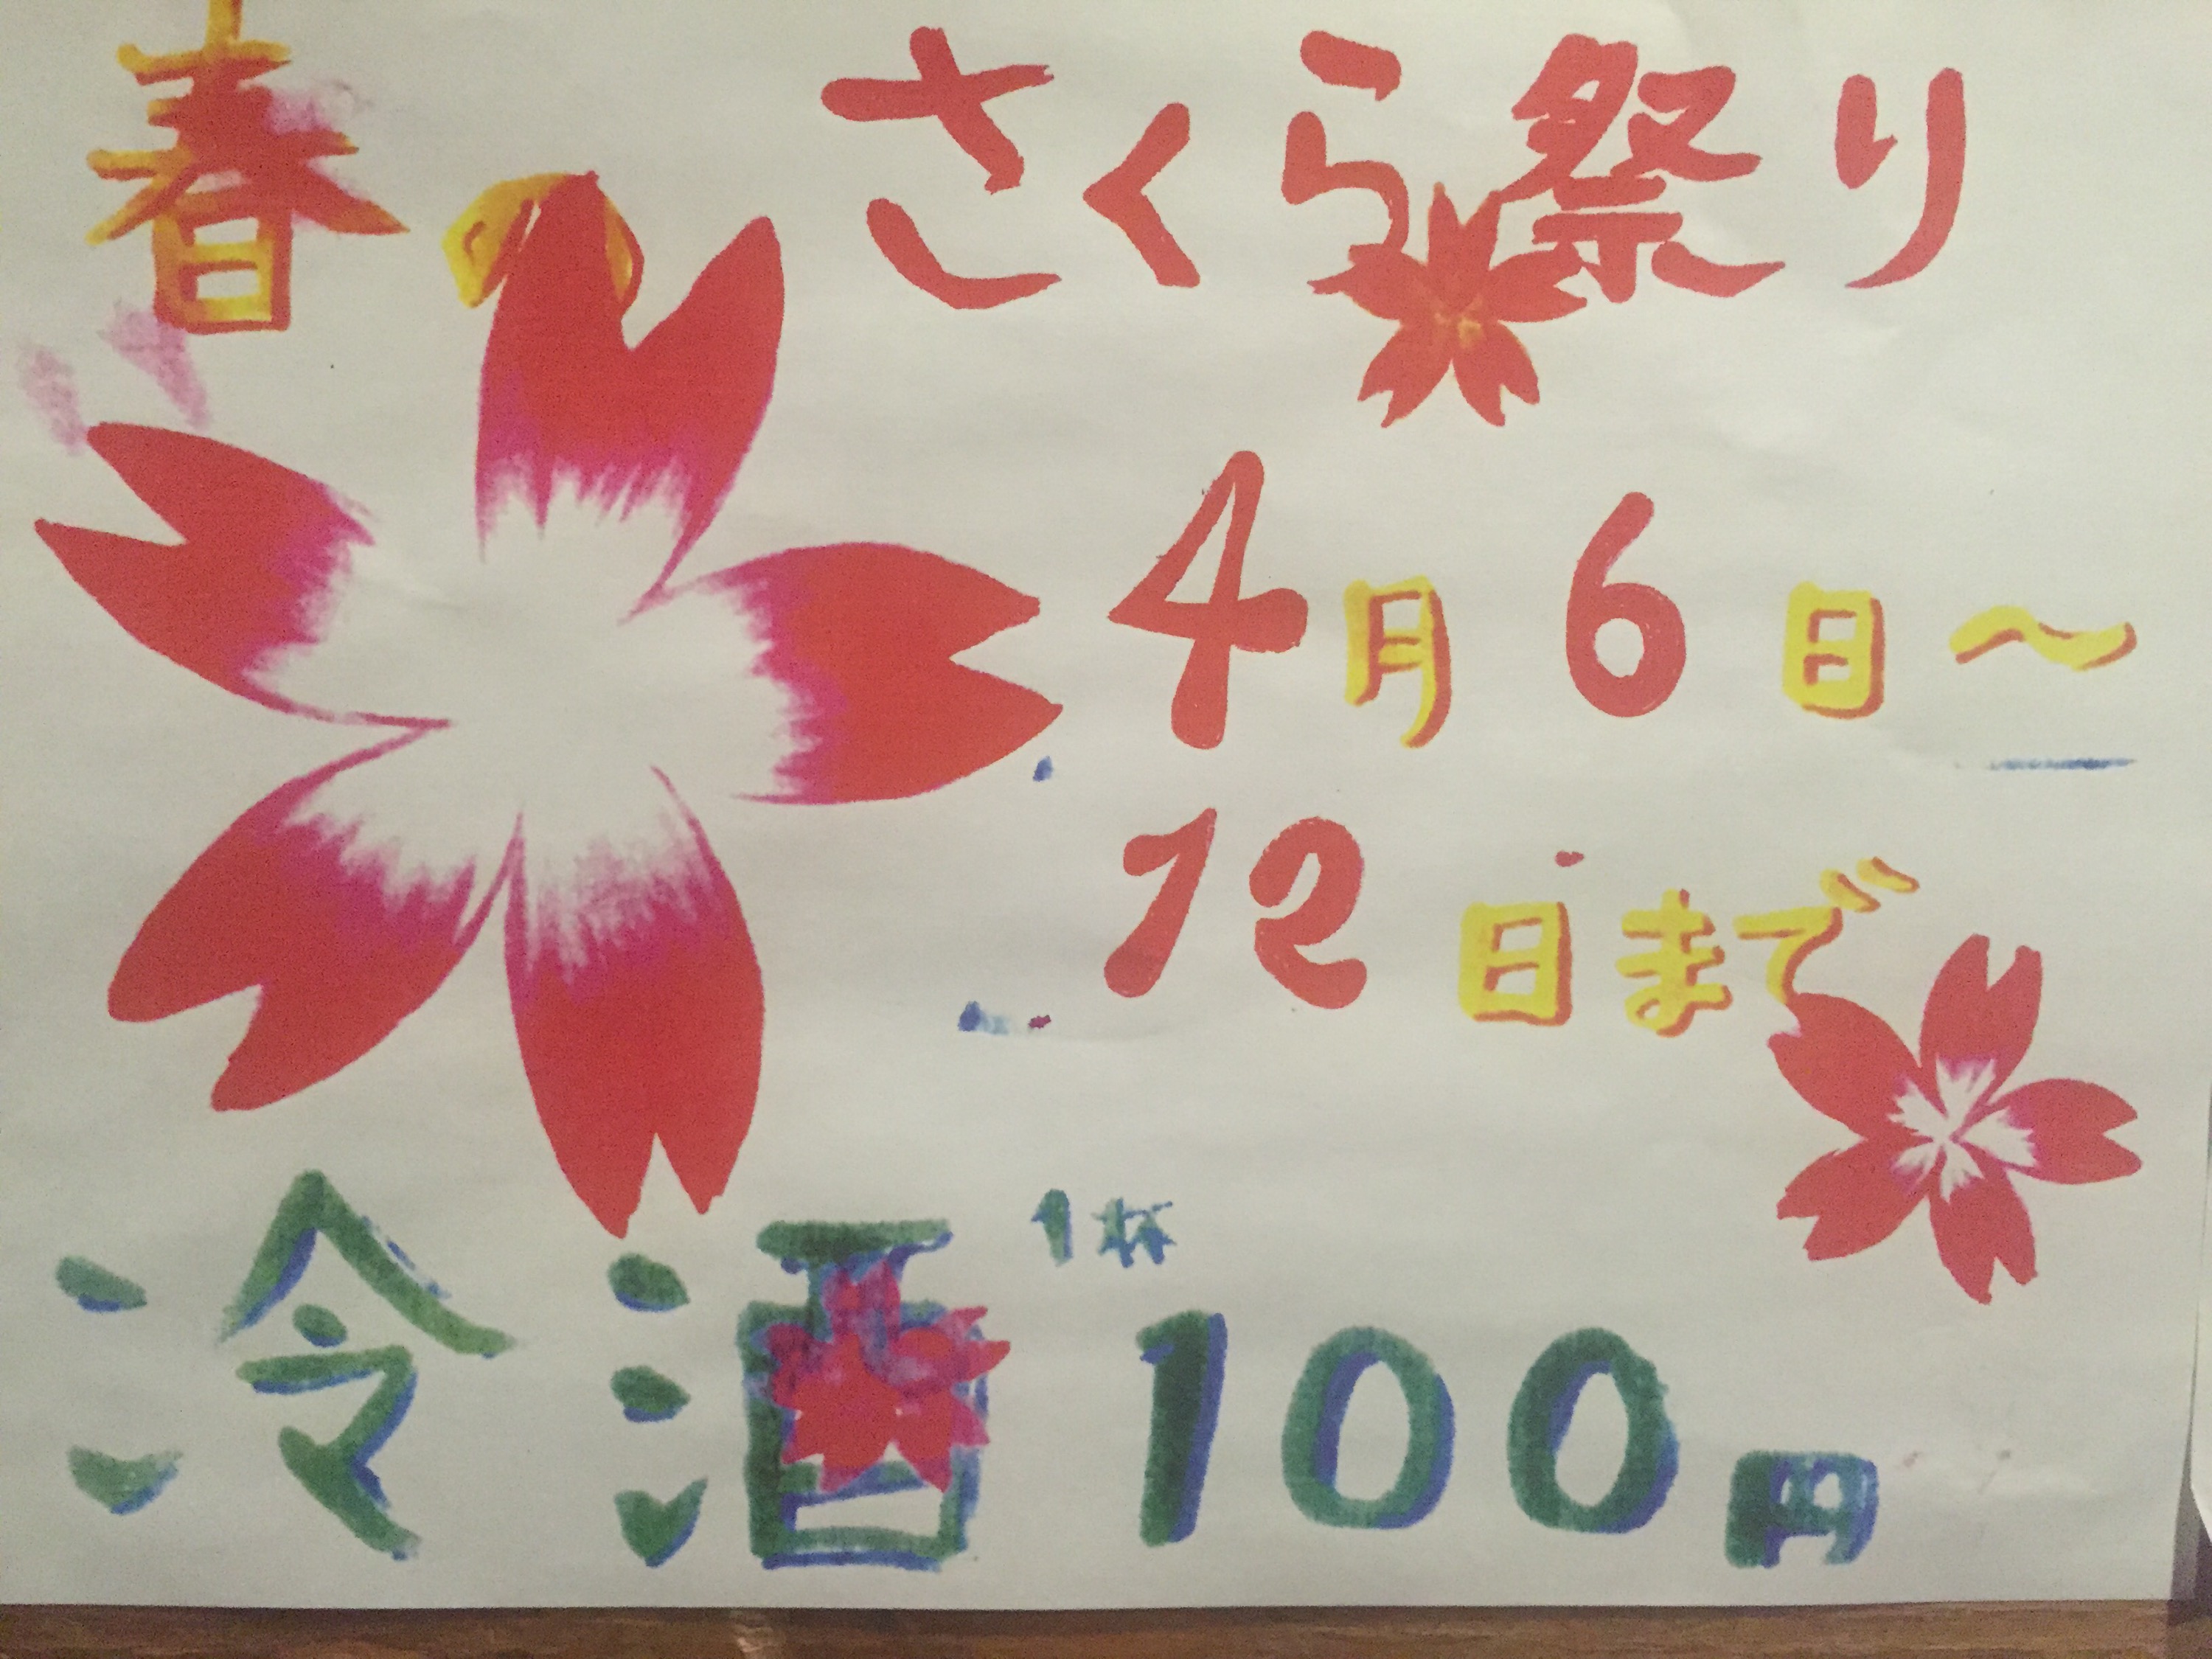 春の さくら祭り
4月6日～
12日まで
冷酒 1杯 100円